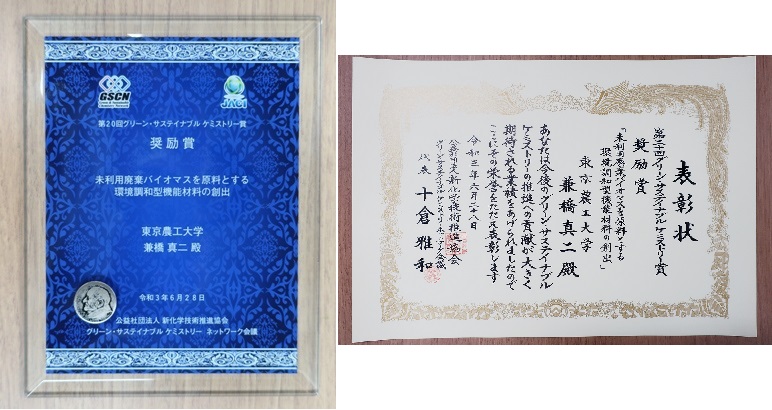 GSCN
JACI
第20回グリーン・サステイナブル ケミストリー賞
奨励賞
未利用廃棄バイオマスを原料とする
環境調和型機能材料の創出
東京農工大学
兼橋 真二 殿
令和3年6月28日
公益社団法人 新化学技術推進協会
グリーン・サステイナブル ケミストリー ネットワーク会議
表彰状
第二十回グリーン・サステイナブルケミストリー賞
奨励賞
「未利用廃棄バイオマスを原料とする
環境調和型機能材料の創出」
東京農工大学
兼橋真二殿
あなたは今後のグリーン・サステイナブル
ケミストリーの推進への貢献が大きく
期待される業績をあげられましたので
ここにその栄誉をたたえ表彰します
令和三年六月二十八日
公益社団法人新化学技術推進協会
グリーン・サステイナブルケミストリーネットワーク会議
代表 十倉雅和